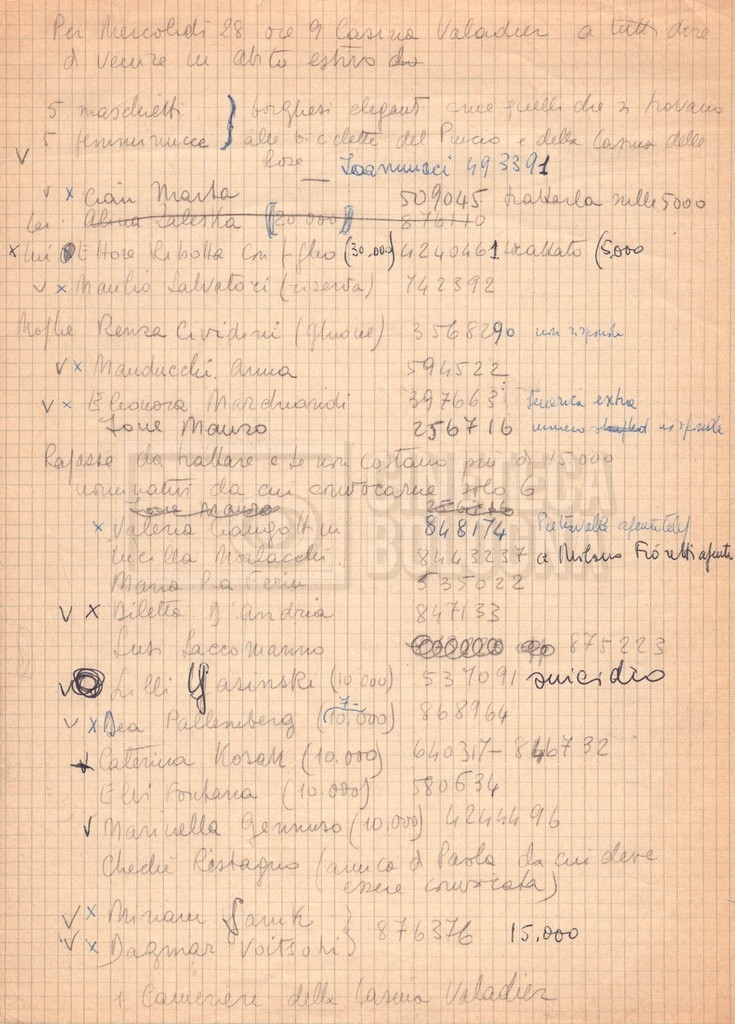 Per Mercoledì 28 ore 9 Casina Valadier a tutti dire
di venire in abito estivo
5 maschietti } borghesi eleganti come quelli che si trovano
5 femminucce } alle biciclette del Pincio e della Casina delle
Rose Ioannucci 493391
Cian Marta 509045 trattarla sulle 5000
Lei. (20.000) 876110
Lui Ettore Ribotta con figlio (30.000) 4240461 trattato (5.000
Manlio Salvatori (riserva) 742392
Moglie Renza Cividini (ghione) 3568290 non risponde
Manducchi Anna 594522
Eleonora 397663 generica extra
Ione Mauro 256716 numero risponde
Ragazze da trattare e se non costano più di 15.000
nominativi da cui convocarne solo 6
Ione Mauro 256716
Valeria 848174
Lucilla Morlacchi 8443237 a Milano Fioretti agente
Maria Pia 535022
Diletta D'Andria 847133
Susi Saccomanno 875223
Lilli Yasinski (10.000) 537091 suicidio
Bea Pallenberg (10.000) 7- 868964
Caterina Kosak (10.000) 640317 - 846732
Elvi Fontana (10.000) 580634
Marinella Gennuso (10.000) 4244496
Chechè Restagno (amica di Paola da cui deve
essere convocata)
Miriam }
Dagmar } 876376 15.000
1 Cameriere della Casina Valadier
CINETECA
BOLOGNA